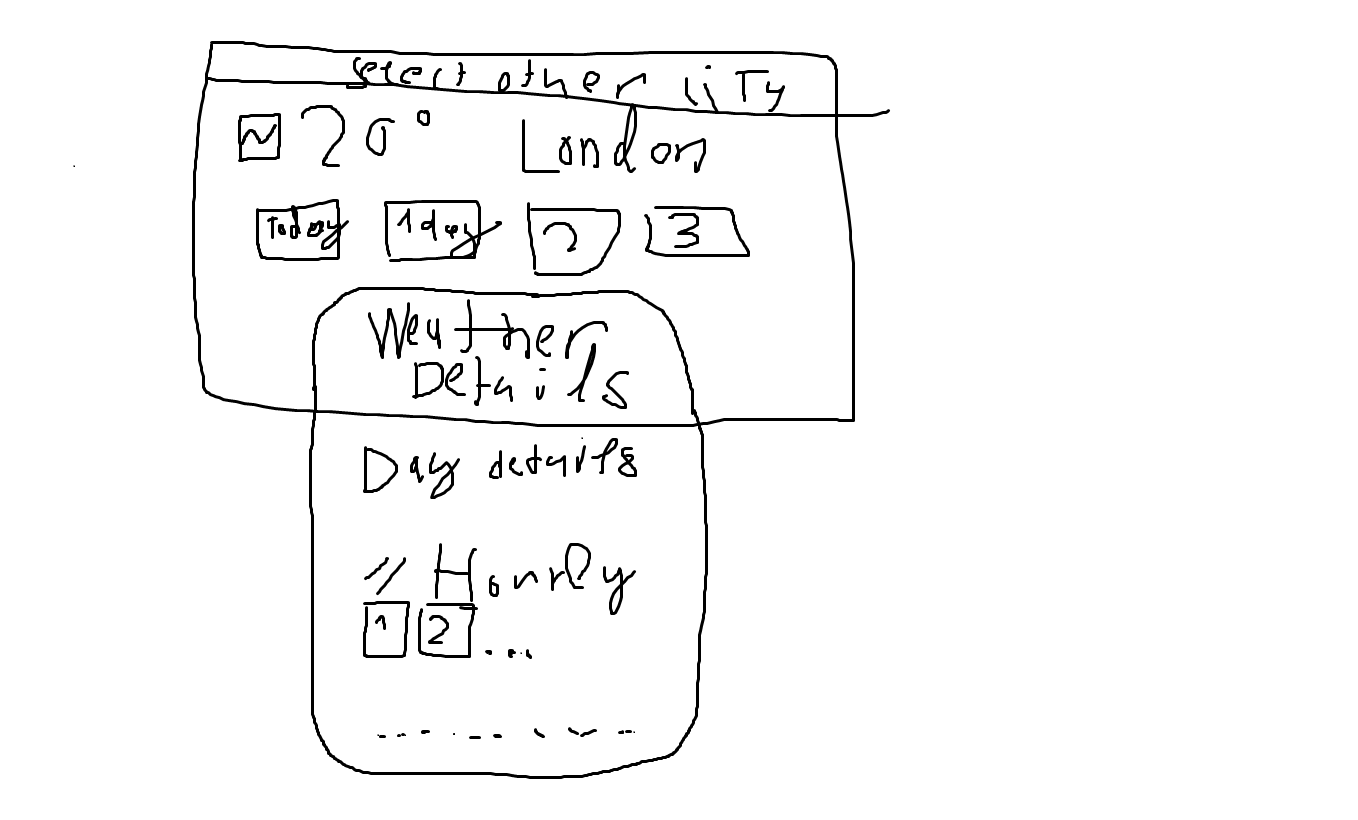 select other city
20° London
Today 1 day 2 3
Weather
Details
Day details
// Hourly
1 2 ...